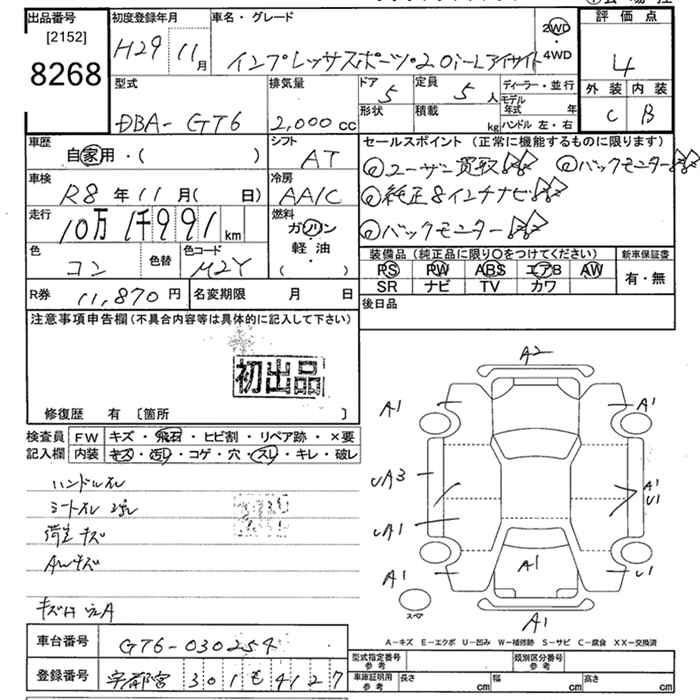 出品番号
[2152]
8268
初度登録年月
H29 11月
車名・グレード
インプレッサスポーツ・2.0i-Lアイサイト
2WD
4WD
評価点
4
外装 内装
C B
型式
DBA- GT6
排気量
2,000 cc
ドア 5
形状
定員 5 人
積載 kg
ディーラー・並行
モデル年式 年
ハンドル 左・右
車歴
自家用・( )
シフト
AT
車検
R8 年 11 月( 日)
冷房
AAC
走行
10万1千991 km
燃料
ガソリン
軽油
( )
色
コン
色替
色コード
M2Y
R券 11,870 円
名変期限 月 日
セールスポイント (正常に機能するものに限ります)
ユーザー買取 バックモニター
純正8インチナビ
バックモニター
装備品(純正品に限り〇をつけてください)
PS PW ABS エアB AW
SR ナビ TV カワ
新車保証書
有・無
後日品
注意事項申告欄(不具合内容等は具体的に記入して下さい)
初出品
修復歴 有 [箇所 ]
検査員記入欄
FW キズ・飛石・ヒビ割・リペア跡・×要
内装 キズ・汚レ・コゲ・穴・スレ・キレ・破レ
ハンドルスレ
シートスレ
荷室キズ
AWキズ
A2
A1 A1
UA3
A1
U1
UA1
A1
A1 U1
A1
スペア
A－キズ E－エクボ U－凹み W－補修跡 S－サビ C－腐食 XX－交換済
車台番号 GT6-030254
登録番号 宇都宮 301 も 4127
型式指定番号 参考
類別区分番号 参考
車庫証明用 参考
長さ cm 幅 cm 高さ cm